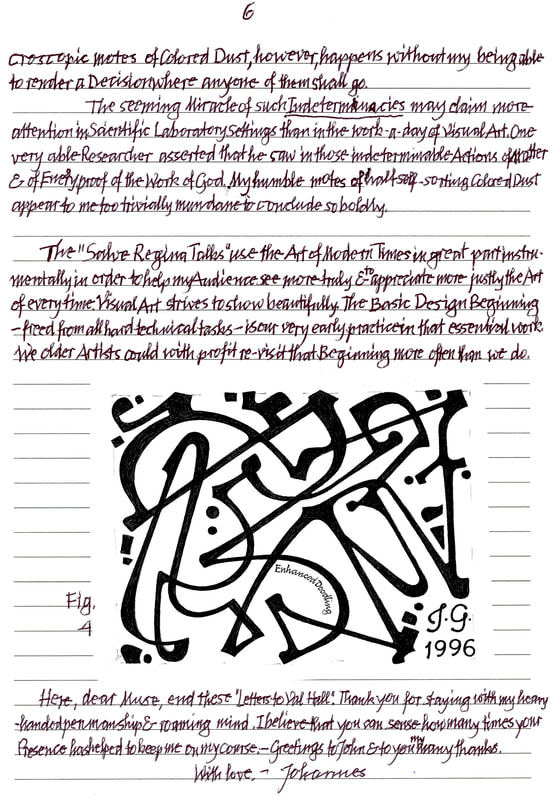 6
croscopic motes of Colored Dust, however, happens without my being able
to render a Decision where anyone of them shall go.
The seeming Miracle of such Indeterminacies may claim more
attention in Scientific Laboratory settings than in the work-a-day of Visual Art. One
very able Researcher asserted that he saw in those indeterminable Actions of Matter
& of Energy proof of the Work of God. My humble motes of half self-sorting Colored Dust
appear to me too trivially mundane to conclude so boldly.
The "Salve Regina Talks" use the Art of Modern Times in great part instru-
mentally in order to help my Audience see more truly & to appreciate more justly the Art
of every time. Visual Art strives to show beautifully. The Basic Design Beginning
-freed from all hard technical tasks- is our very early practice in that essential work.
We older Artists could with profit re-visit that Beginning more often than we do.
Enhanced Doodling
Fig.
4
J.G.
1996
Here, dear Muse, end these "Letters to Val Hall". Thank you for staying with my heavy
-handed penmanship & roaming mind. I believe that you can sense how many times your
Presence has helped to keep me on my course. - Greetings to John & to you my many thanks.
With love, - Johannes